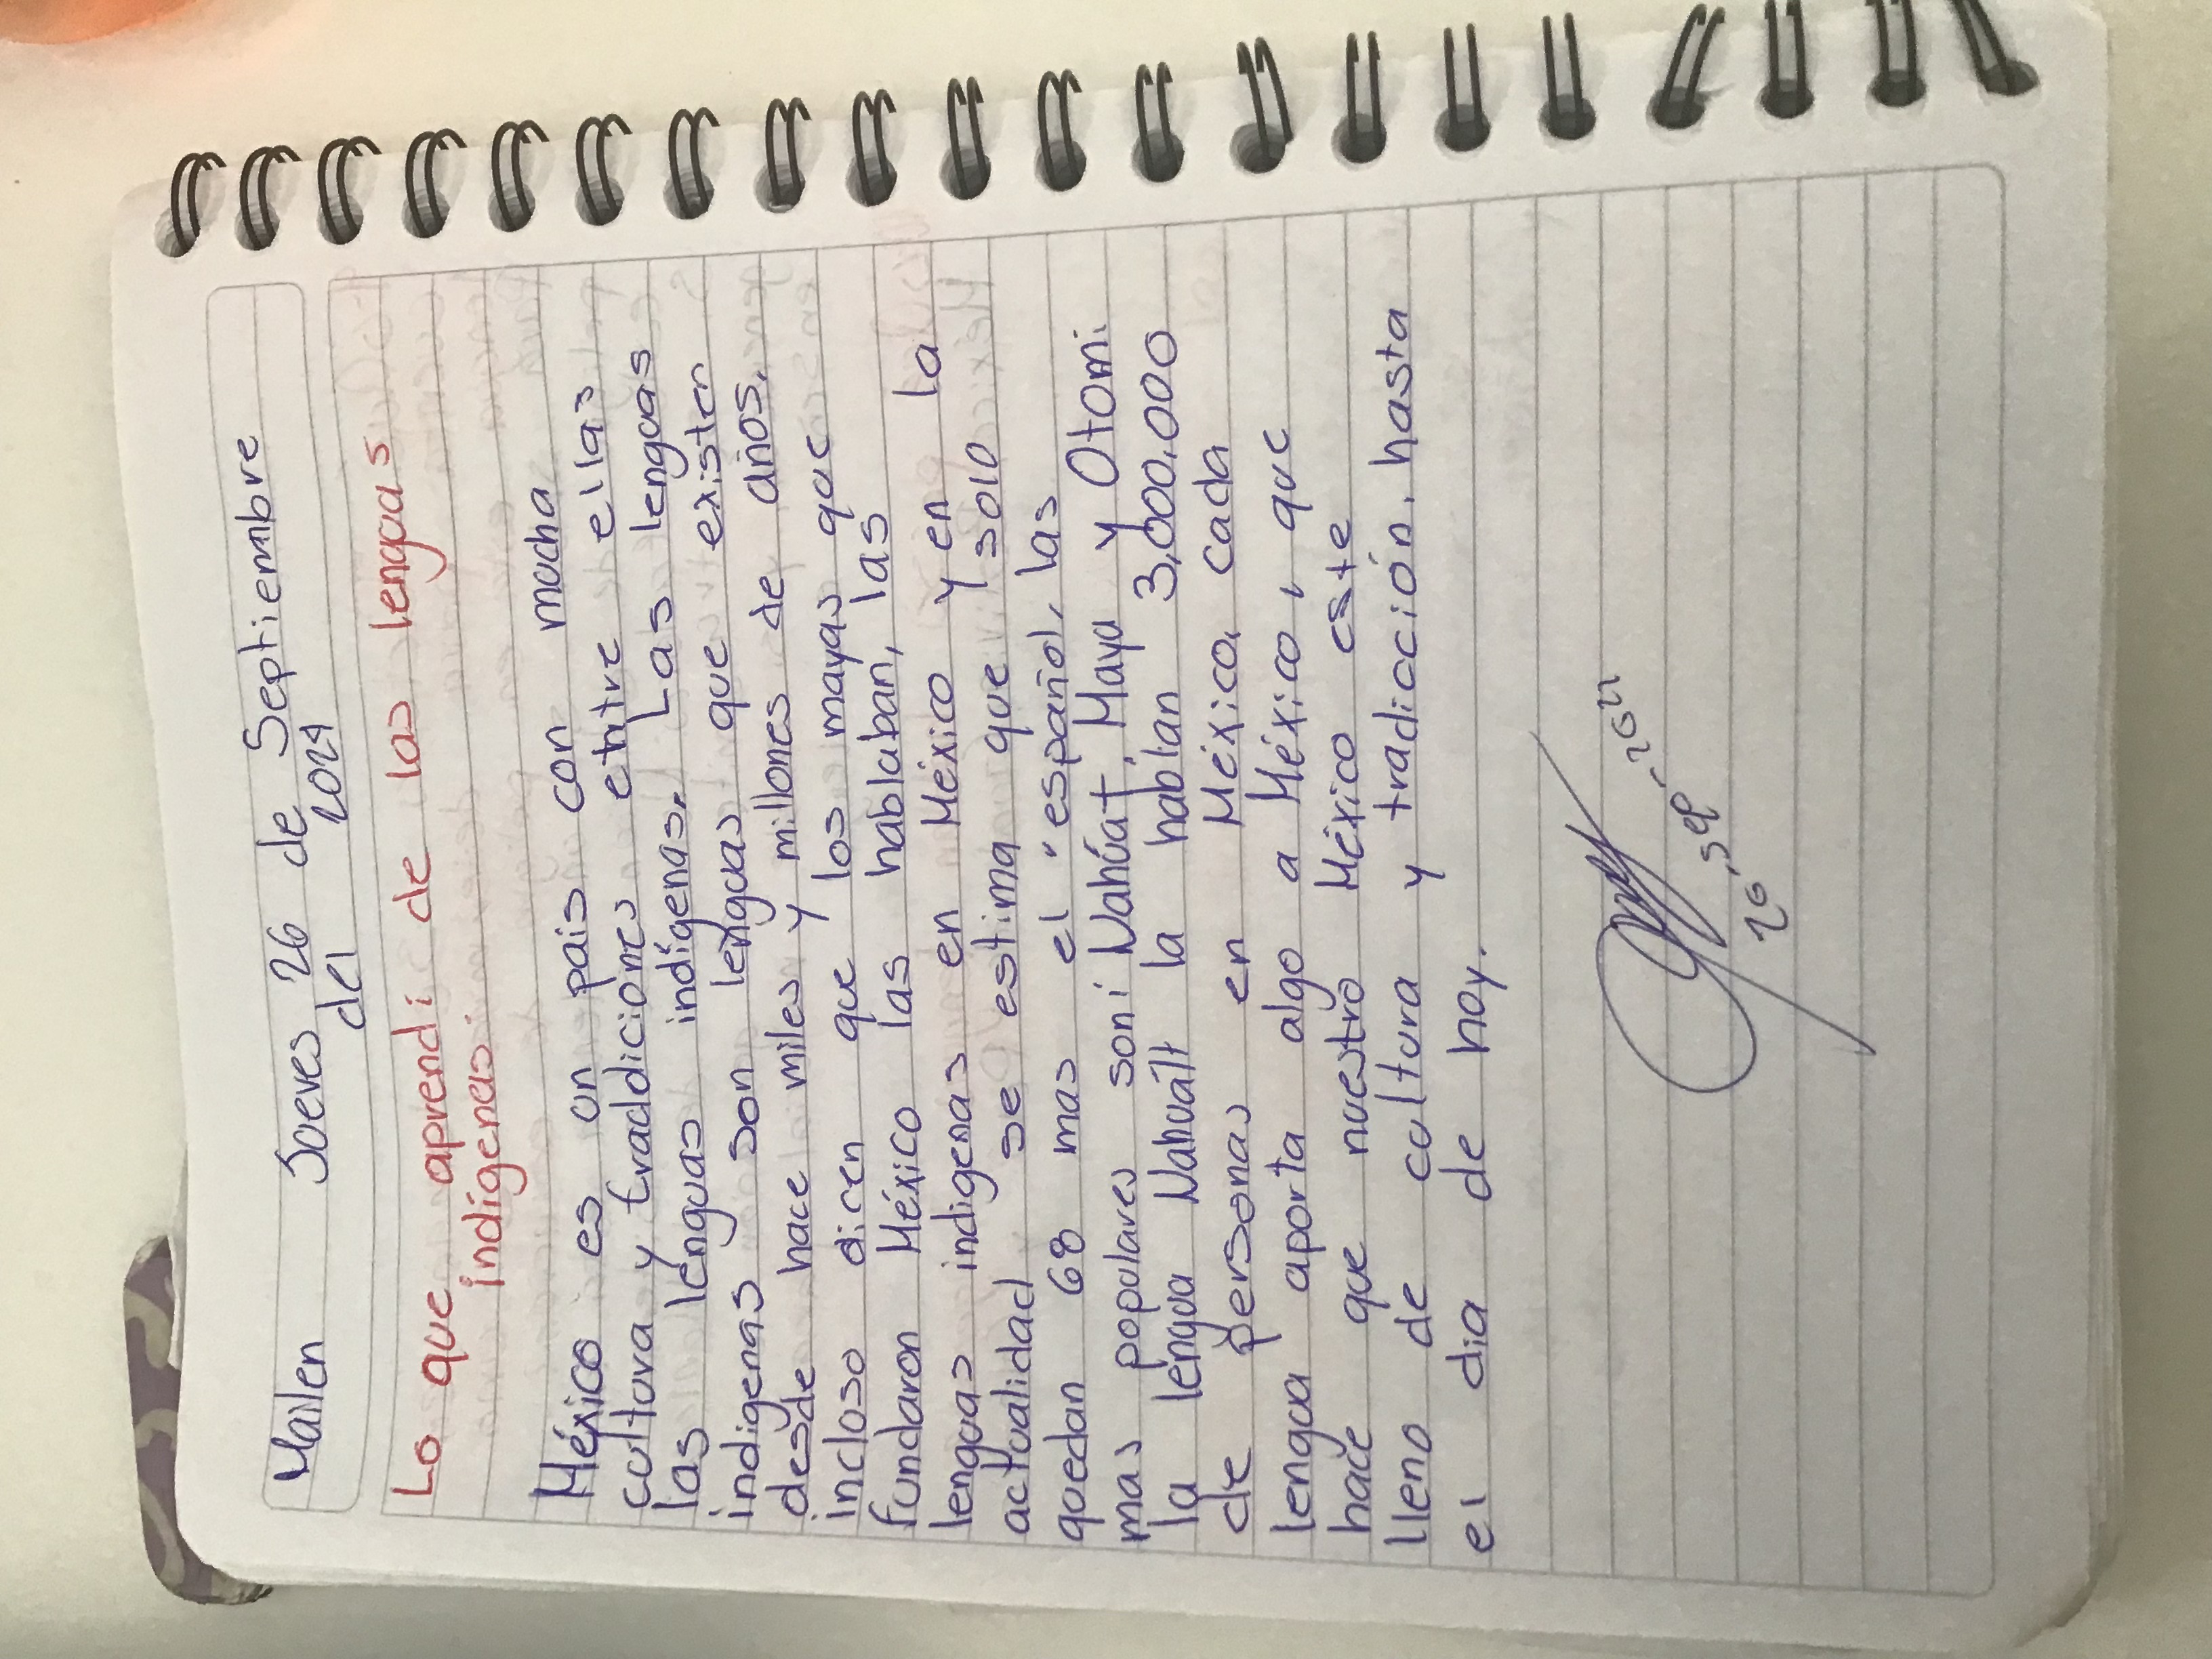 Mailen Jueves 26 de Septiembre
del 2024
Lo que aprendí de las lenguas
indígenas.
México es un pais con mucha
cultura y tradiciones entre ellas
las lenguas indígenas. Las lenguas
indigenas son lenguas que existen
desde hace miles y millones de años,
incluso dicen que los mayas que
fundaron México las hablaban, las
lenguas indigenas en México y en la
actualidad se estima que solo
quedan 68 mas el "español, las
mas populares son: Nahúat, Maya y Otomi.
la lengua Nahuált la hablan 3,000.000
de personas en México, cada
lengua aporta algo a México, que
hace que nuestro México este
lleno de cultura y tradicción, hasta
el dia de hoy.
26, sep - 2024